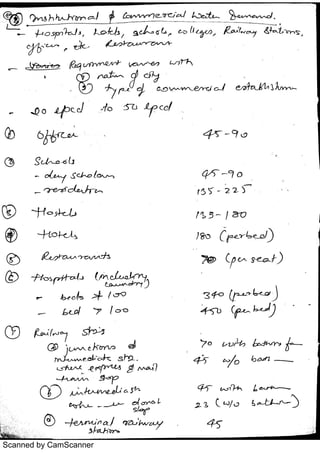 Institutional & Commercial Water Demand.
- Hospitals, Hotels, schools, colleges, Railway Stations,
offices, etc. Restaurant
- Requirement varies with
① nature of city
② type of commercial establishm
- 20 lpcd to 50 lpcd
offices 45-90
③ Schools
- day scholars 45-90
- residential 135-225
Hostels 135-180
Hotels 180 (per bed)
⑤ Restaurants 70 (per seat)
⑥ Hospitals (including laundry)
- beds ≯ 100 340 (per bed)
- bed > 100 450 (per bed)
⑦ Railway Sta's
ⓐ junctions & 70 with
intermediate sta. 45 w/o
where express & mail
train stop
ⓑ intermediate 45 with
do not 23 (w/o
stop
terminal railway 45
stations
Scanned by CamScanner